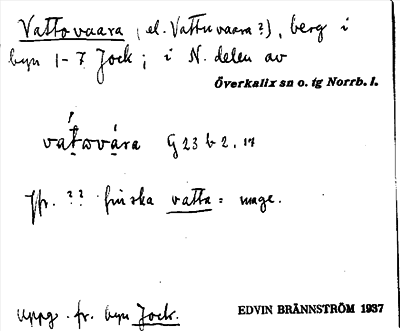 Vattovaara (el. Vattuvaara?), berg i
byn 1-7 Jock; i N. delen av
Överkalix sn o. tg Norrb. l.
vatωvára G 23 b 2, 17
Jfr. ?? finska vatta = mage.
uppg. fr. byn Jock.
EDVIN BRÄNNSTRÖM 1937